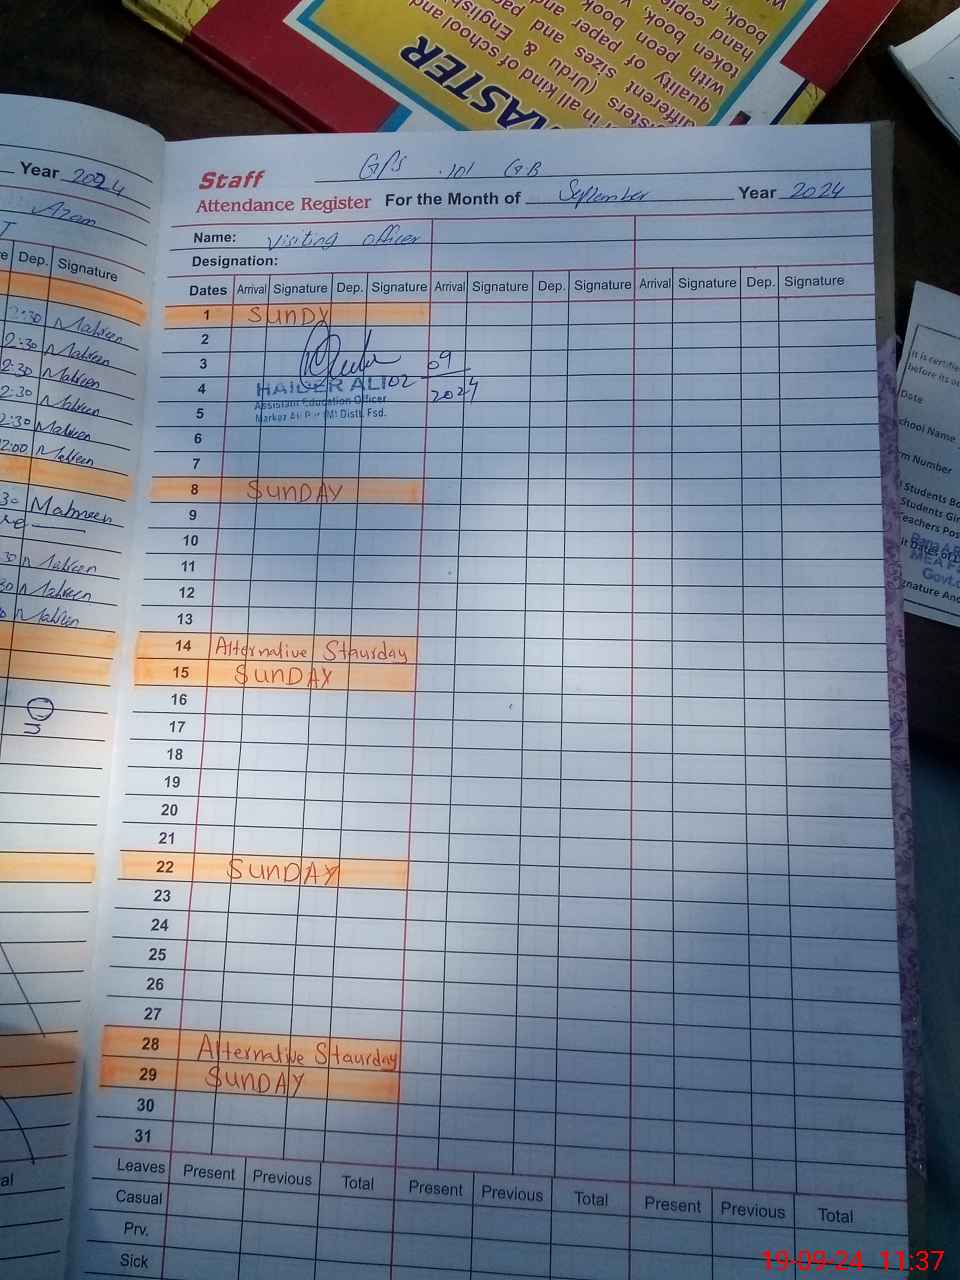 MASTER
all kind of school and
(Urdu & English
sizes and
paper and
different
quality of
with been book,
taken book
hand copie
book, re
Year 2024
Azam
Dep. Signature
2:30 Mahreen
2:30 Mahreen
2:30 Mahreen
2:30 Mahreen
2:30 Mahreen
2:00 Mahreen
30 Mahreen
30 Mahreen
30 Mahreen
Mahreen
Staff GPS 101 GB
Attendance Register For the Month of September Year 2024
Name: Visiting officer
Designation:
Dates Arrival Signature Dep. Signature Arrival Signature Dep. Signature Arrival Signature Dep. Signature
1 SUNDY
2
3 09
4 HAIDER ALI 02 2024
Assistant Education Officer
5 Markaz Ali Pur (M) Distt. Fsd.
6
7
8 SUNDAY
9
10
11
12
13
14 Alternative Staurday
15 SUNDAY
16
17
18
19
20
21
22 SUNDAY
23
24
25
26
27
28 Alternative Staurday
29 SUNDAY
30
31
Leaves Present Previous Total Present Previous Total Present Previous Total
Casual
Prv.
Sick
It is certifie
before its o
Date
chool Name
rm Number
Students Bo
Students Gir
Teachers Pos
MEA
Govt.
gnature And
19-09-24 11:37